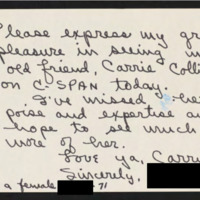 Please express my gr
pleasure in seeing m
old friend, Carrie Colli
on C-SPAN today.
I've missed her
poise and expertise a
hope to see much
more of her.
Love ya, Carr
Sincerely,
a female 71